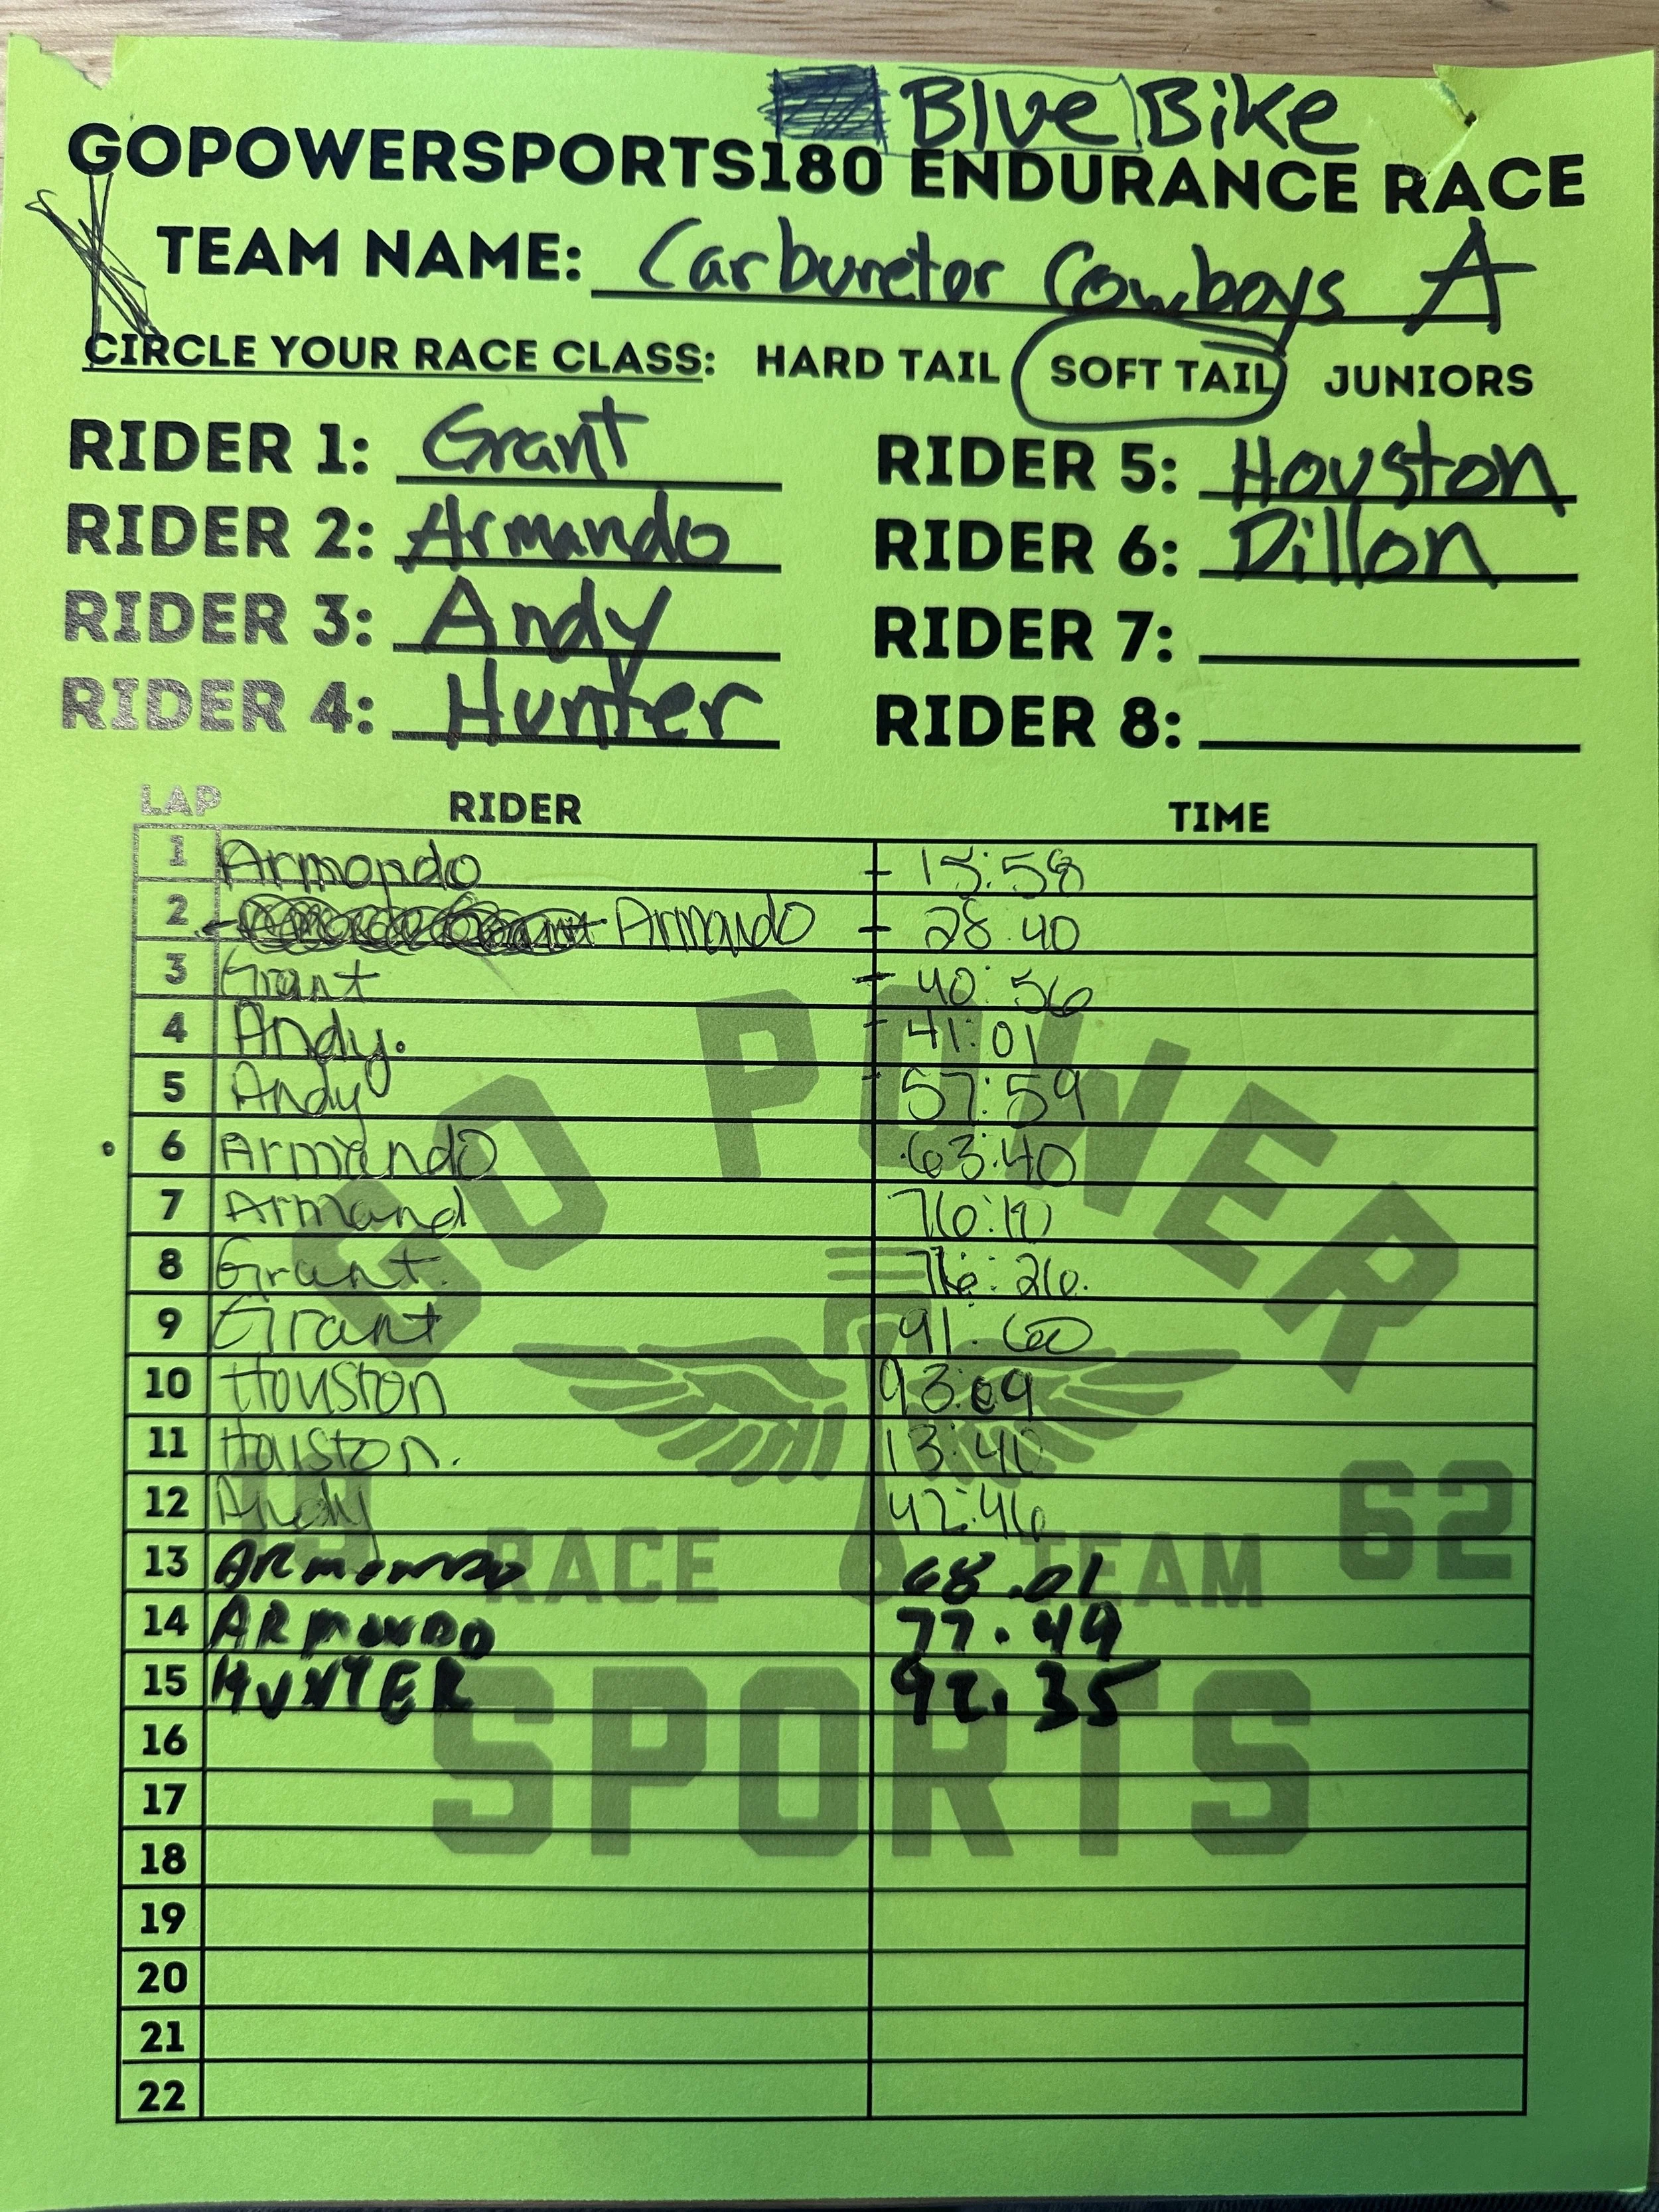 Blue Bike
GOPOWERSPORTS180 ENDURANCE RACE
TEAM NAME: Carburetor Cowboys A
CIRCLE YOUR RACE CLASS: HARD TAIL SOFT TAIL JUNIORS
RIDER 1: Grant RIDER 5: Houston
RIDER 2: Armando RIDER 6: Dillon
RIDER 3: Andy RIDER 7:
RIDER 4: Hunter RIDER 8:
LAP RIDER TIME
1 Armondo - 15:58
2 Armando - 28:40
3 Grant - 40:56
4 Andy. - 41:01
5 Andy - 57:59
6 Armando 63:40
7 Armand
8 Grant. 76:26.
9 Grant 91.60
10 Houston 93:09
11 Houston. 13:40
12 Andy 42:46
13 ARMONDO 68.01
14 ARMONDO 77.49
15 HUNTER 92.35
16
17
18
19
20
21
22
GO POWER
RACE TEAM 62
SPORTS